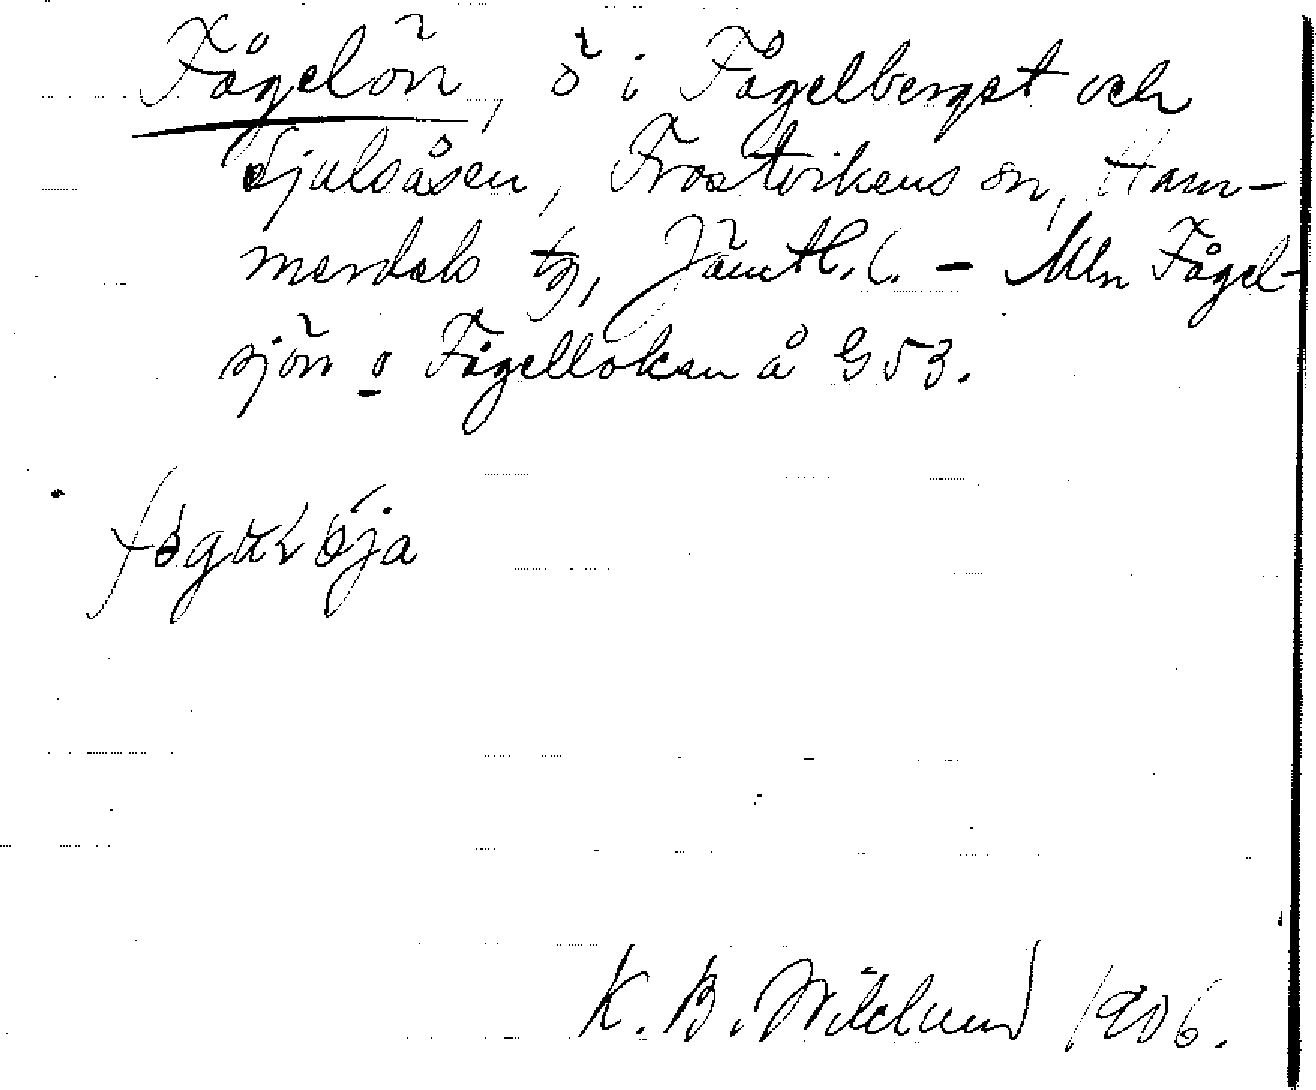 Fågelön, ö i Fågelberget och
Sjulsåsen, Frostvikens sn, Ham-
merdals tg, Jämtl. l. - Mln Fågel-
sjön o Fågelloken å G 53.
K. B. Wiklund 1906.